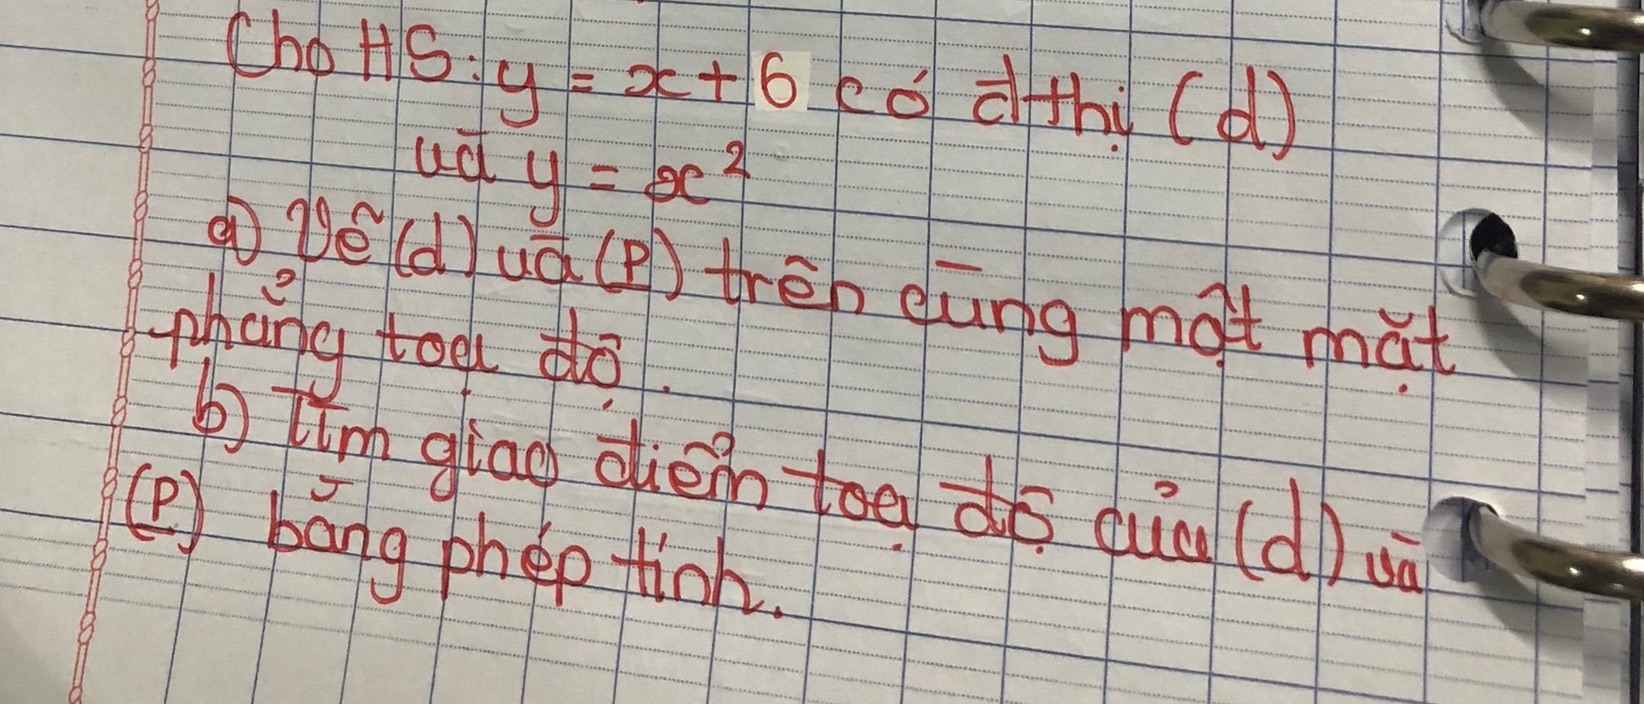 Cho HS: y = x + 6 có đthị (d)
và y = x²
a) Vẽ (d) và (P) trên cùng một mặt
phẳng toạ độ.
b) Tìm giao điểm toạ độ của (d) và
(P) bằng phép tính.